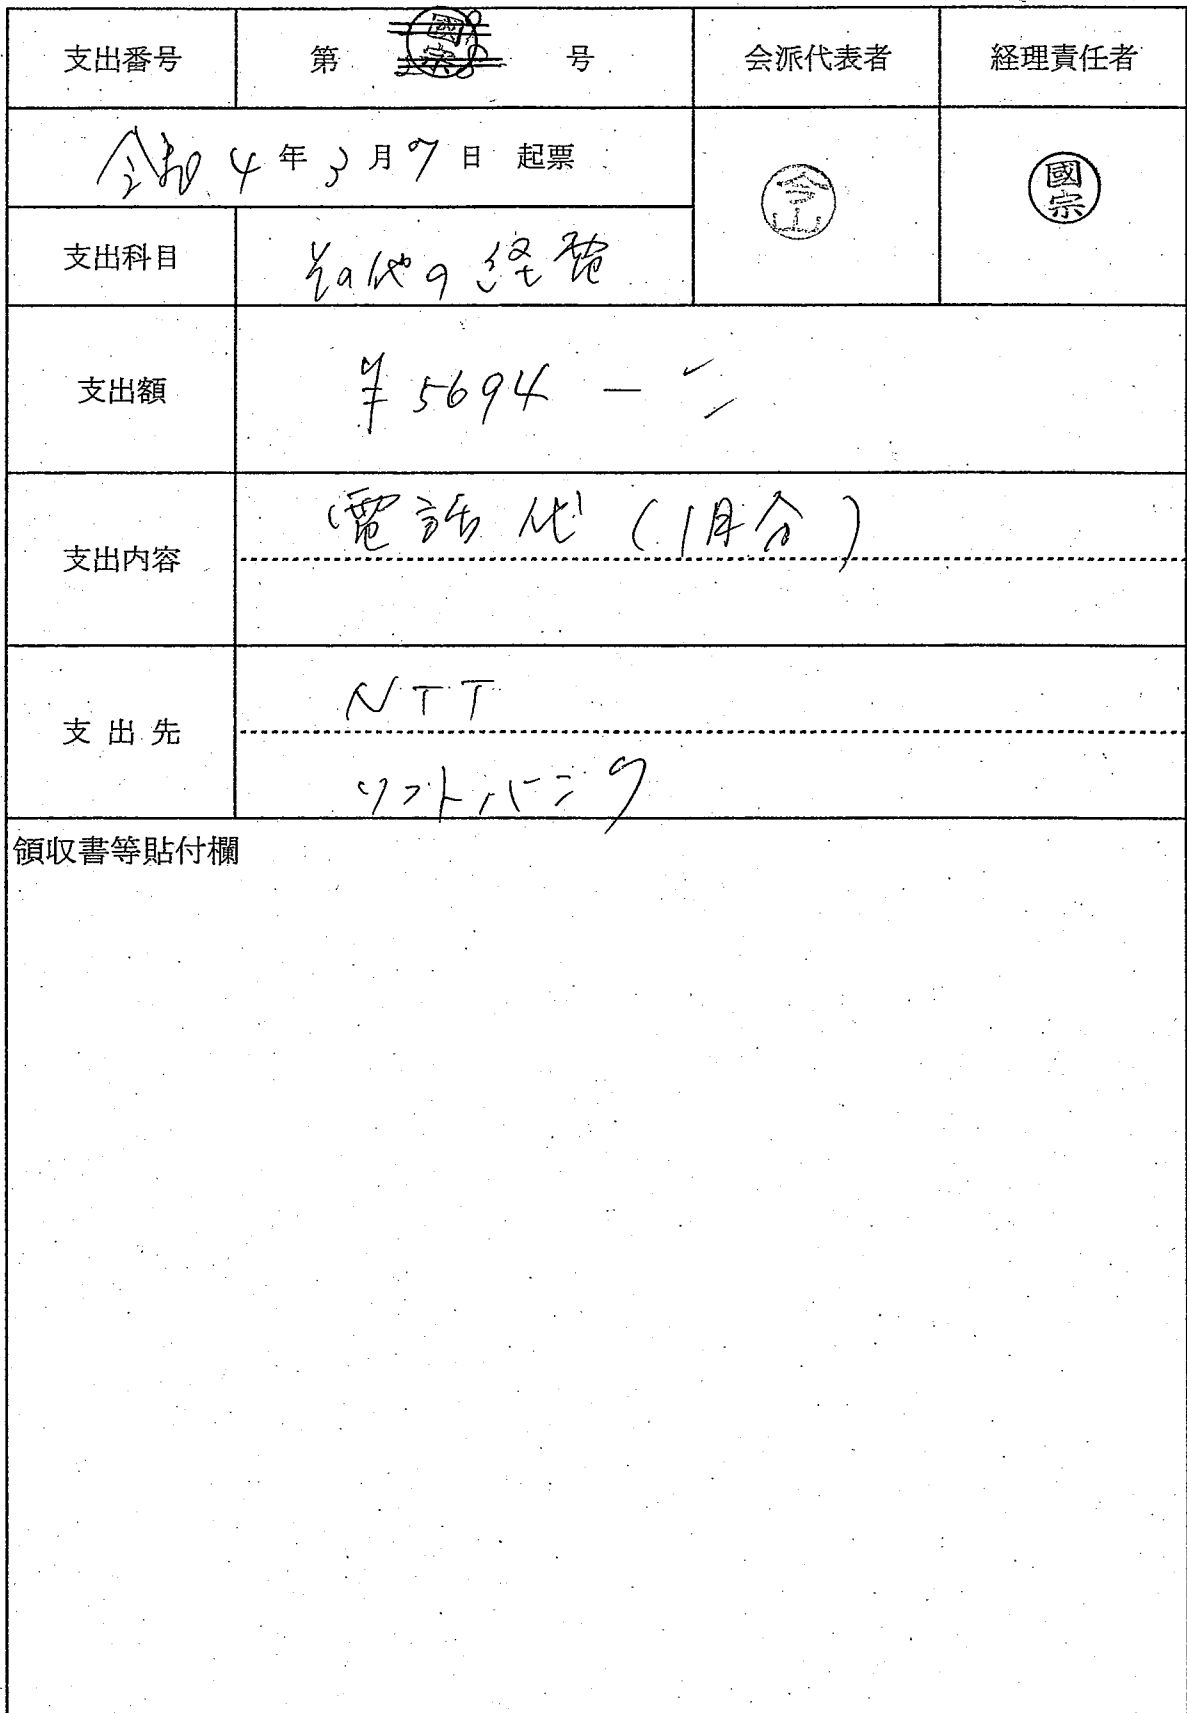 支出番号 第 号 会派代表者 経理責任者
令和 4 年 3 月 7 日 起票
今山
國宗
支出科目 その他の経費
支出額 ¥5694-
支出内容 電話代(1月分)
支出先 NTT
ソフトバンク
領収書等貼付欄